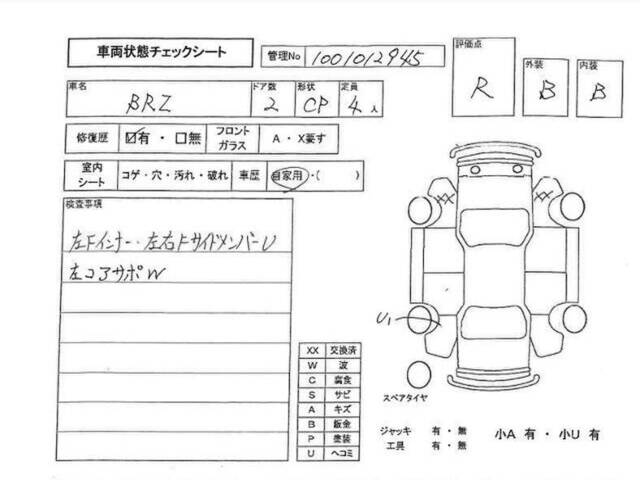 車両状態チェックシート
管理No 1001012945
評価点 R
外装 B
内装 B
車名 BRZ
ドア数 2
形状 CP
定員 4人
修復歴 ☑有・□無
フロントガラス A・X要す
室内シート コゲ・穴・汚れ・破れ
車歴 自家用・( )
検査事項
左Fインナー・左右FサイドメンバーU
左コアサポW
XX
XX
U1
XX 交換済
W 波
C 腐食
S サビ
A キズ
B 鈑金
P 塗装
U ヘコミ
スペアタイヤ
ジャッキ 有・無
工具 有・無
小A 有・小U 有